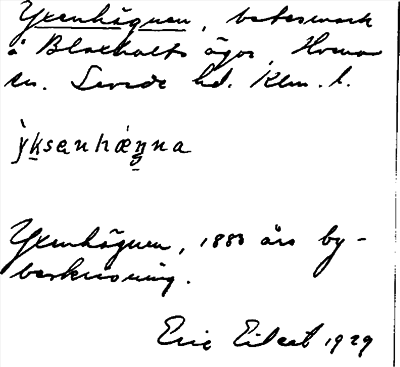 Yxenhägnen, betesmark
å Blaxhults ägor,
sn. Sevede hd. Klm. l.
ỳksenhæ̀ŋna
Yxenhägnen, 1880 års by-
beskrivning.
Eric Eilert 1929